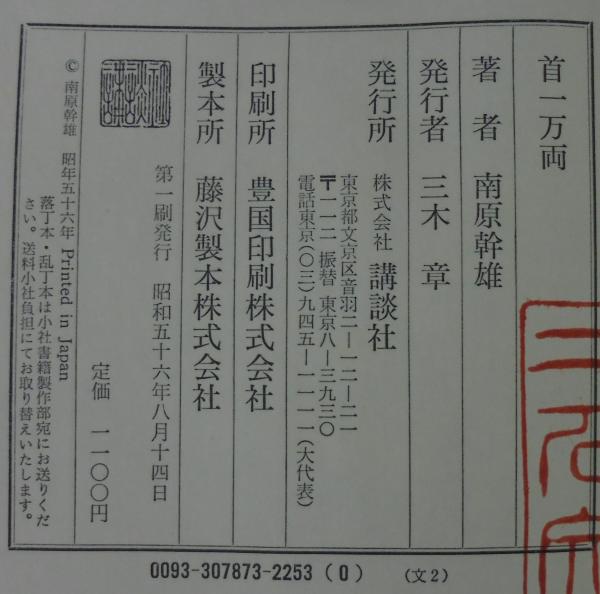 首一万両
著者 南原幹雄
発行者 三木 章
発行所 株式会社 講談社
東京都文京区音羽二―一二―二一
〒一一二 振替 東京八―三九三〇
電話東京(〇三)九四五―一一一一(大代表)
印刷所 豊国印刷株式会社
製本所 藤沢製本株式会社
第一刷発行 昭和五十六年八月十四日
定価 一一〇〇円
© 南原幹雄 昭和五十六年 Printed in Japan
落丁本・乱丁本は小社書籍製作部宛にお送りくだ
さい。送料小社負担にてお取り替えいたします。
0093-307873-2253 (0) (文2)